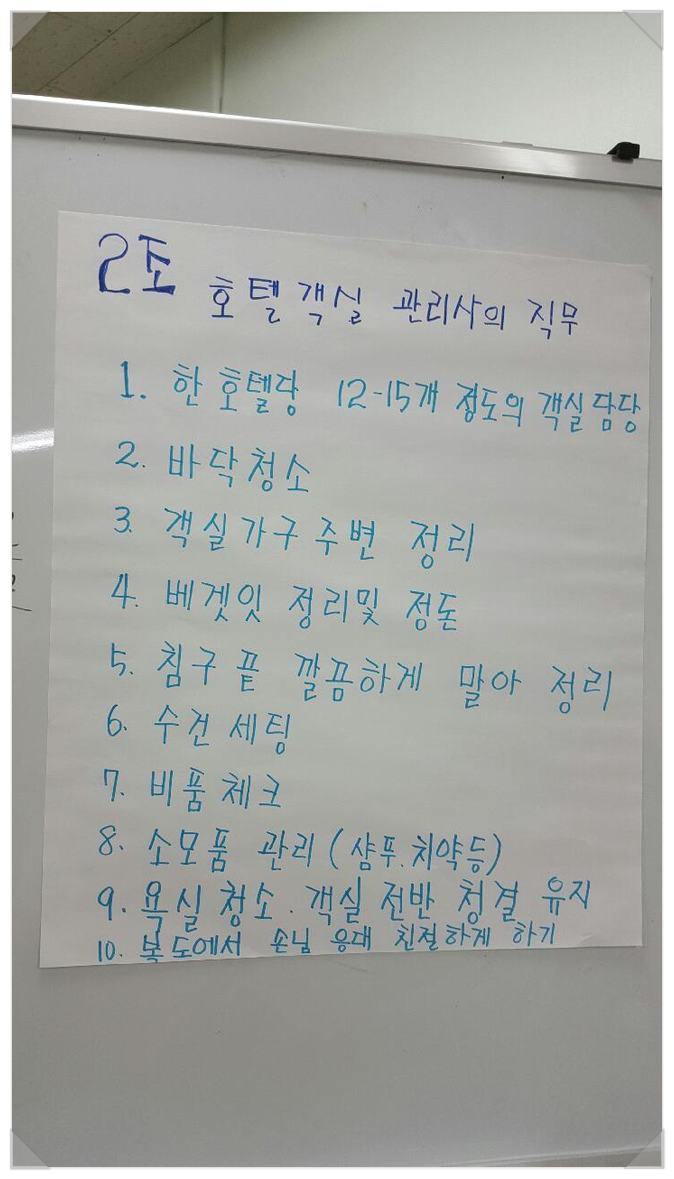 2조 호텔객실 관리사의 직무
1. 한 호텔당 12-15개 정도의 객실담당
2. 바닥청소
3. 객실가구주변 정리
4. 베겟잇 정리및 정돈
5. 침구끝 깔끔하게 말아 정리
6. 수건세팅
7. 비품체크
8. 소모품 관리(샴푸.치약등)
9. 욕실청소. 객실전반 청결 유지
10. 복도에서 손님 응대 친절하게 하기